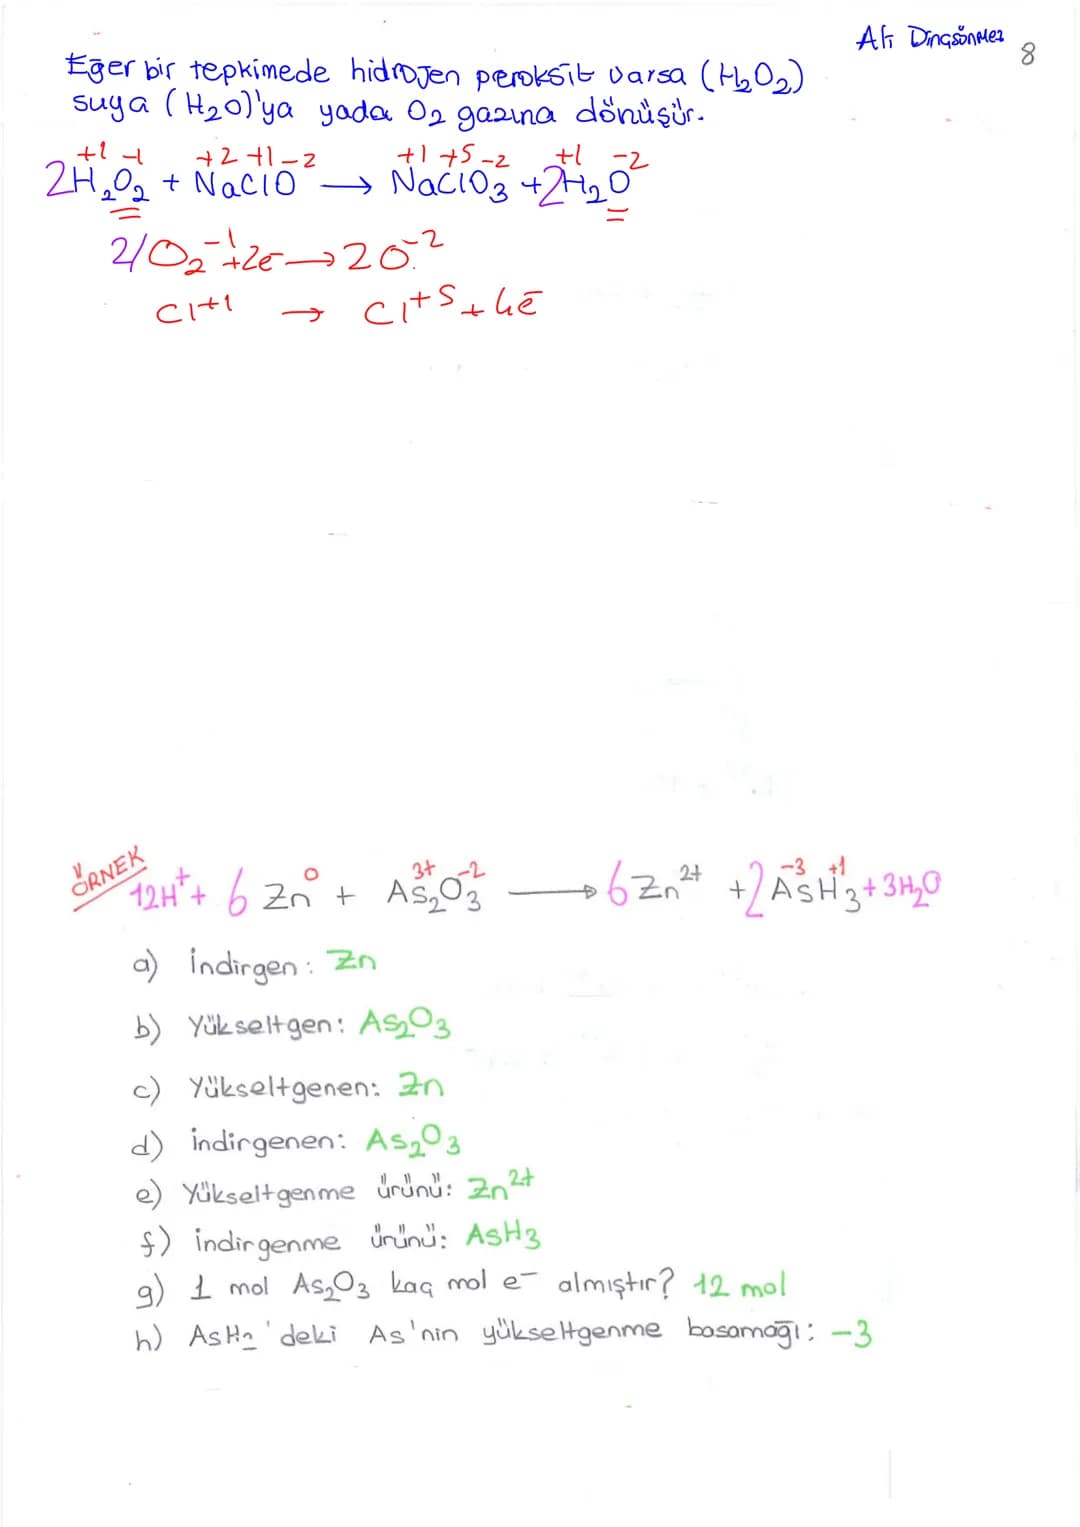 Ali Dinçsönmez
8
Eğer bir tepkimede hidrojen peroksit varsa (H₂O₂)
suya (H₂O)'ya yada O₂ gazına dönüşür.
+1 -1 +2 +1 -2 +1 +5 -2 +1 -2
2H₂O₂ + NaClO → NaClO₃ + 2H₂O
2/O₂⁻¹ + 2e⁻ → 2O⁻²
Cl⁺¹ → Cl⁺⁵ + 4e⁻
ÖRNEK
0 3+ -2 -3 +1
12H⁺ + 6 Zn + As₂O₃ → 6Zn²⁺ + 2AsH₃ + 3H₂O
a) İndirgen: Zn
b) Yükseltgen: As₂O₃
c) Yükseltgenen: Zn
d) İndirgenen: As₂O₃
e) Yükseltgenme ürünü: Zn²⁺
f) İndirgenme ürünü: AsH₃
g) 1 mol As₂O₃ kaç mol e⁻ almıştır? 12 mol
h) AsH₃'deki As'nin yükseltgenme basamağı: -3